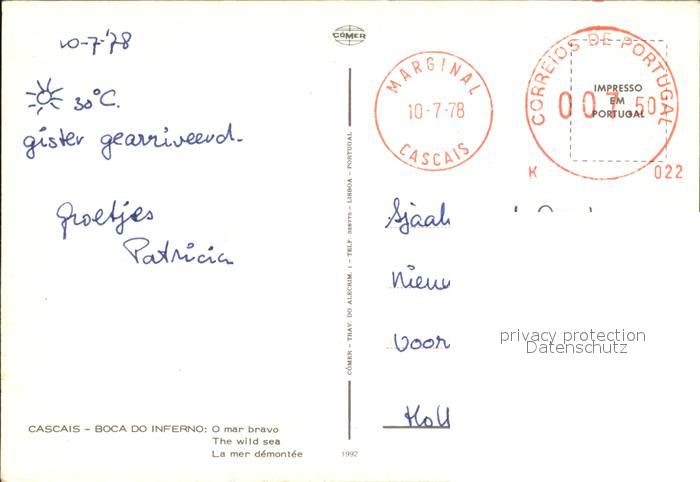 10-7-'78
30°C.
gister gearriveerd.
Groetjes
Patricia
CASCAIS - BOCA DO INFERNO: O mar bravo
The wild sea
La mer démontée
1992
CÓMER
CÓMER - TRAV. DO ALECRIM, 1 - TELF. - LISBOA - PORTUGAL
MARGINAL
10-7-78
CASCAIS
CORREIOS DE PORTUGAL
007.50
IMPRESSO
EM
PORTUGAL
K 022
Sjaak
Nieuw
Voor
Holl
privacy protection
Datenschutz